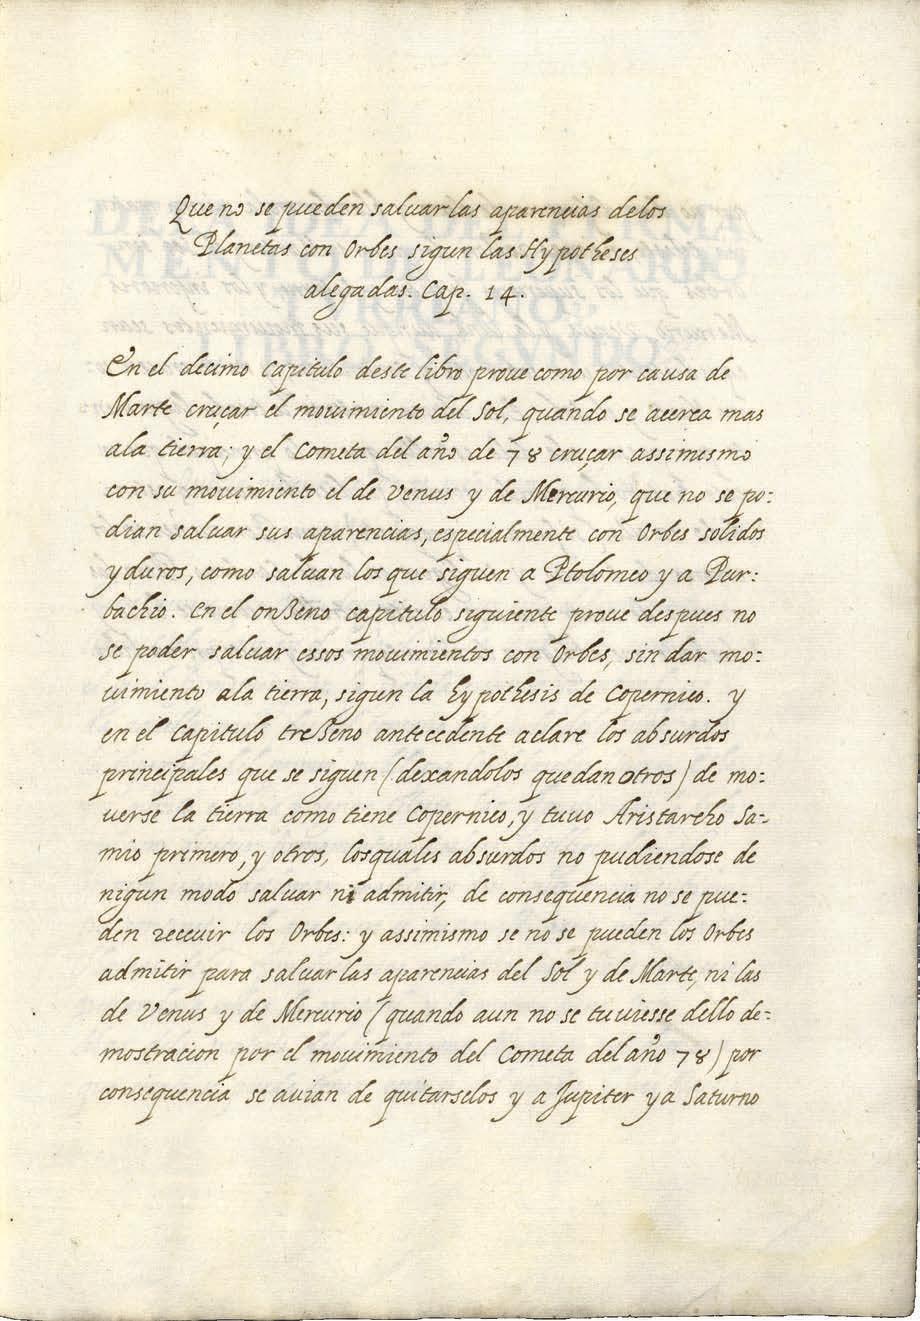 Que no se pueden saluar las aparencias delos
Planetas con Orbes sigun las Hypotheses
alegadas. Cap. 14.
En el decimo Capitulo deste libro proue como por causa de
Marte cruçar el mouimiento del Sol, quando se acerca mas
ala tierra; y el Cometa del año de 78 cruçar assimismo
con su mouimiento el de Venus y de Mercurio, que no se po:
dian saluar sus aparencias, especialmente con Orbes solidos
y duros, como saluan los que siguen a Ptolomeo y a Pur:
bachio. En el onzeno capitulo siguiente proue despues no
se poder saluar essos mouimientos con Orbes, sin dar mo:
uimiento ala tierra, sigun la hypothesis de Copernico. y
en el Capitulo trezeno antecedente aclare los absurdos
principales que se siguen (dexandolos quedan otros) de mo:
uerse la tierra como tiene Copernico, y tuuo Aristarcho Sa-
mio primero, y otros, losquales absurdos no pudiendose de
nigun modo saluar ni admitir, de consequencia no se pue:
den receuir los Orbes: y assimismo se no se pueden los Orbes
admitir para saluar las aparencias del Sol y de Marte, ni las
de Venus y de Mercurio (quando aun no se tuuiesse dello de=
mostracion por el mouimiento del Cometa del año 78) por
consequencia se auian de quitarselos y a Jupiter y a Saturno